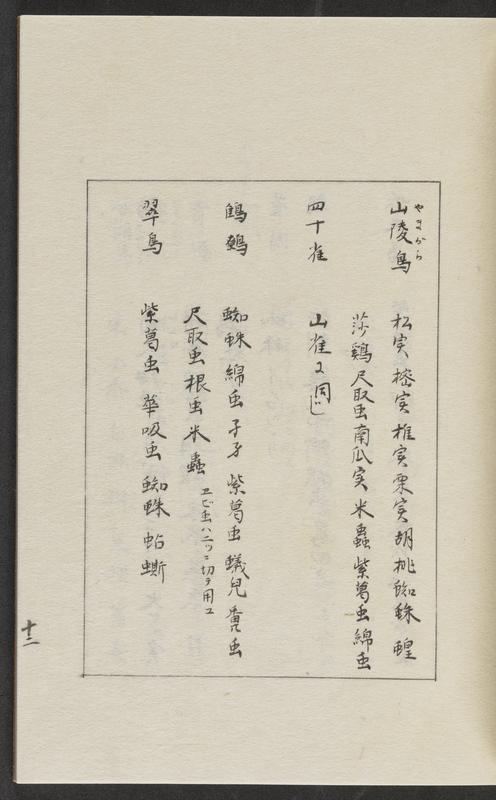 山陵鳥 松実 榧実 椎実 栗実 胡桃 蜘蛛 蝗
やまがら
莎鶏 尺取虫 南瓜実 米蟲 紫葛虫 綿虫
四十雀 山雀ニ同じ
鶺鴒 蜘蛛 綿虫 孑孑 紫葛虫 蟻児 糞虫
尺取虫 根虫 米蟲 ヱビ虫ハ二ツニ切テ用ユ
翠鳥 紫葛虫 華吸虫 蜘蛛 蛅蟖
十二